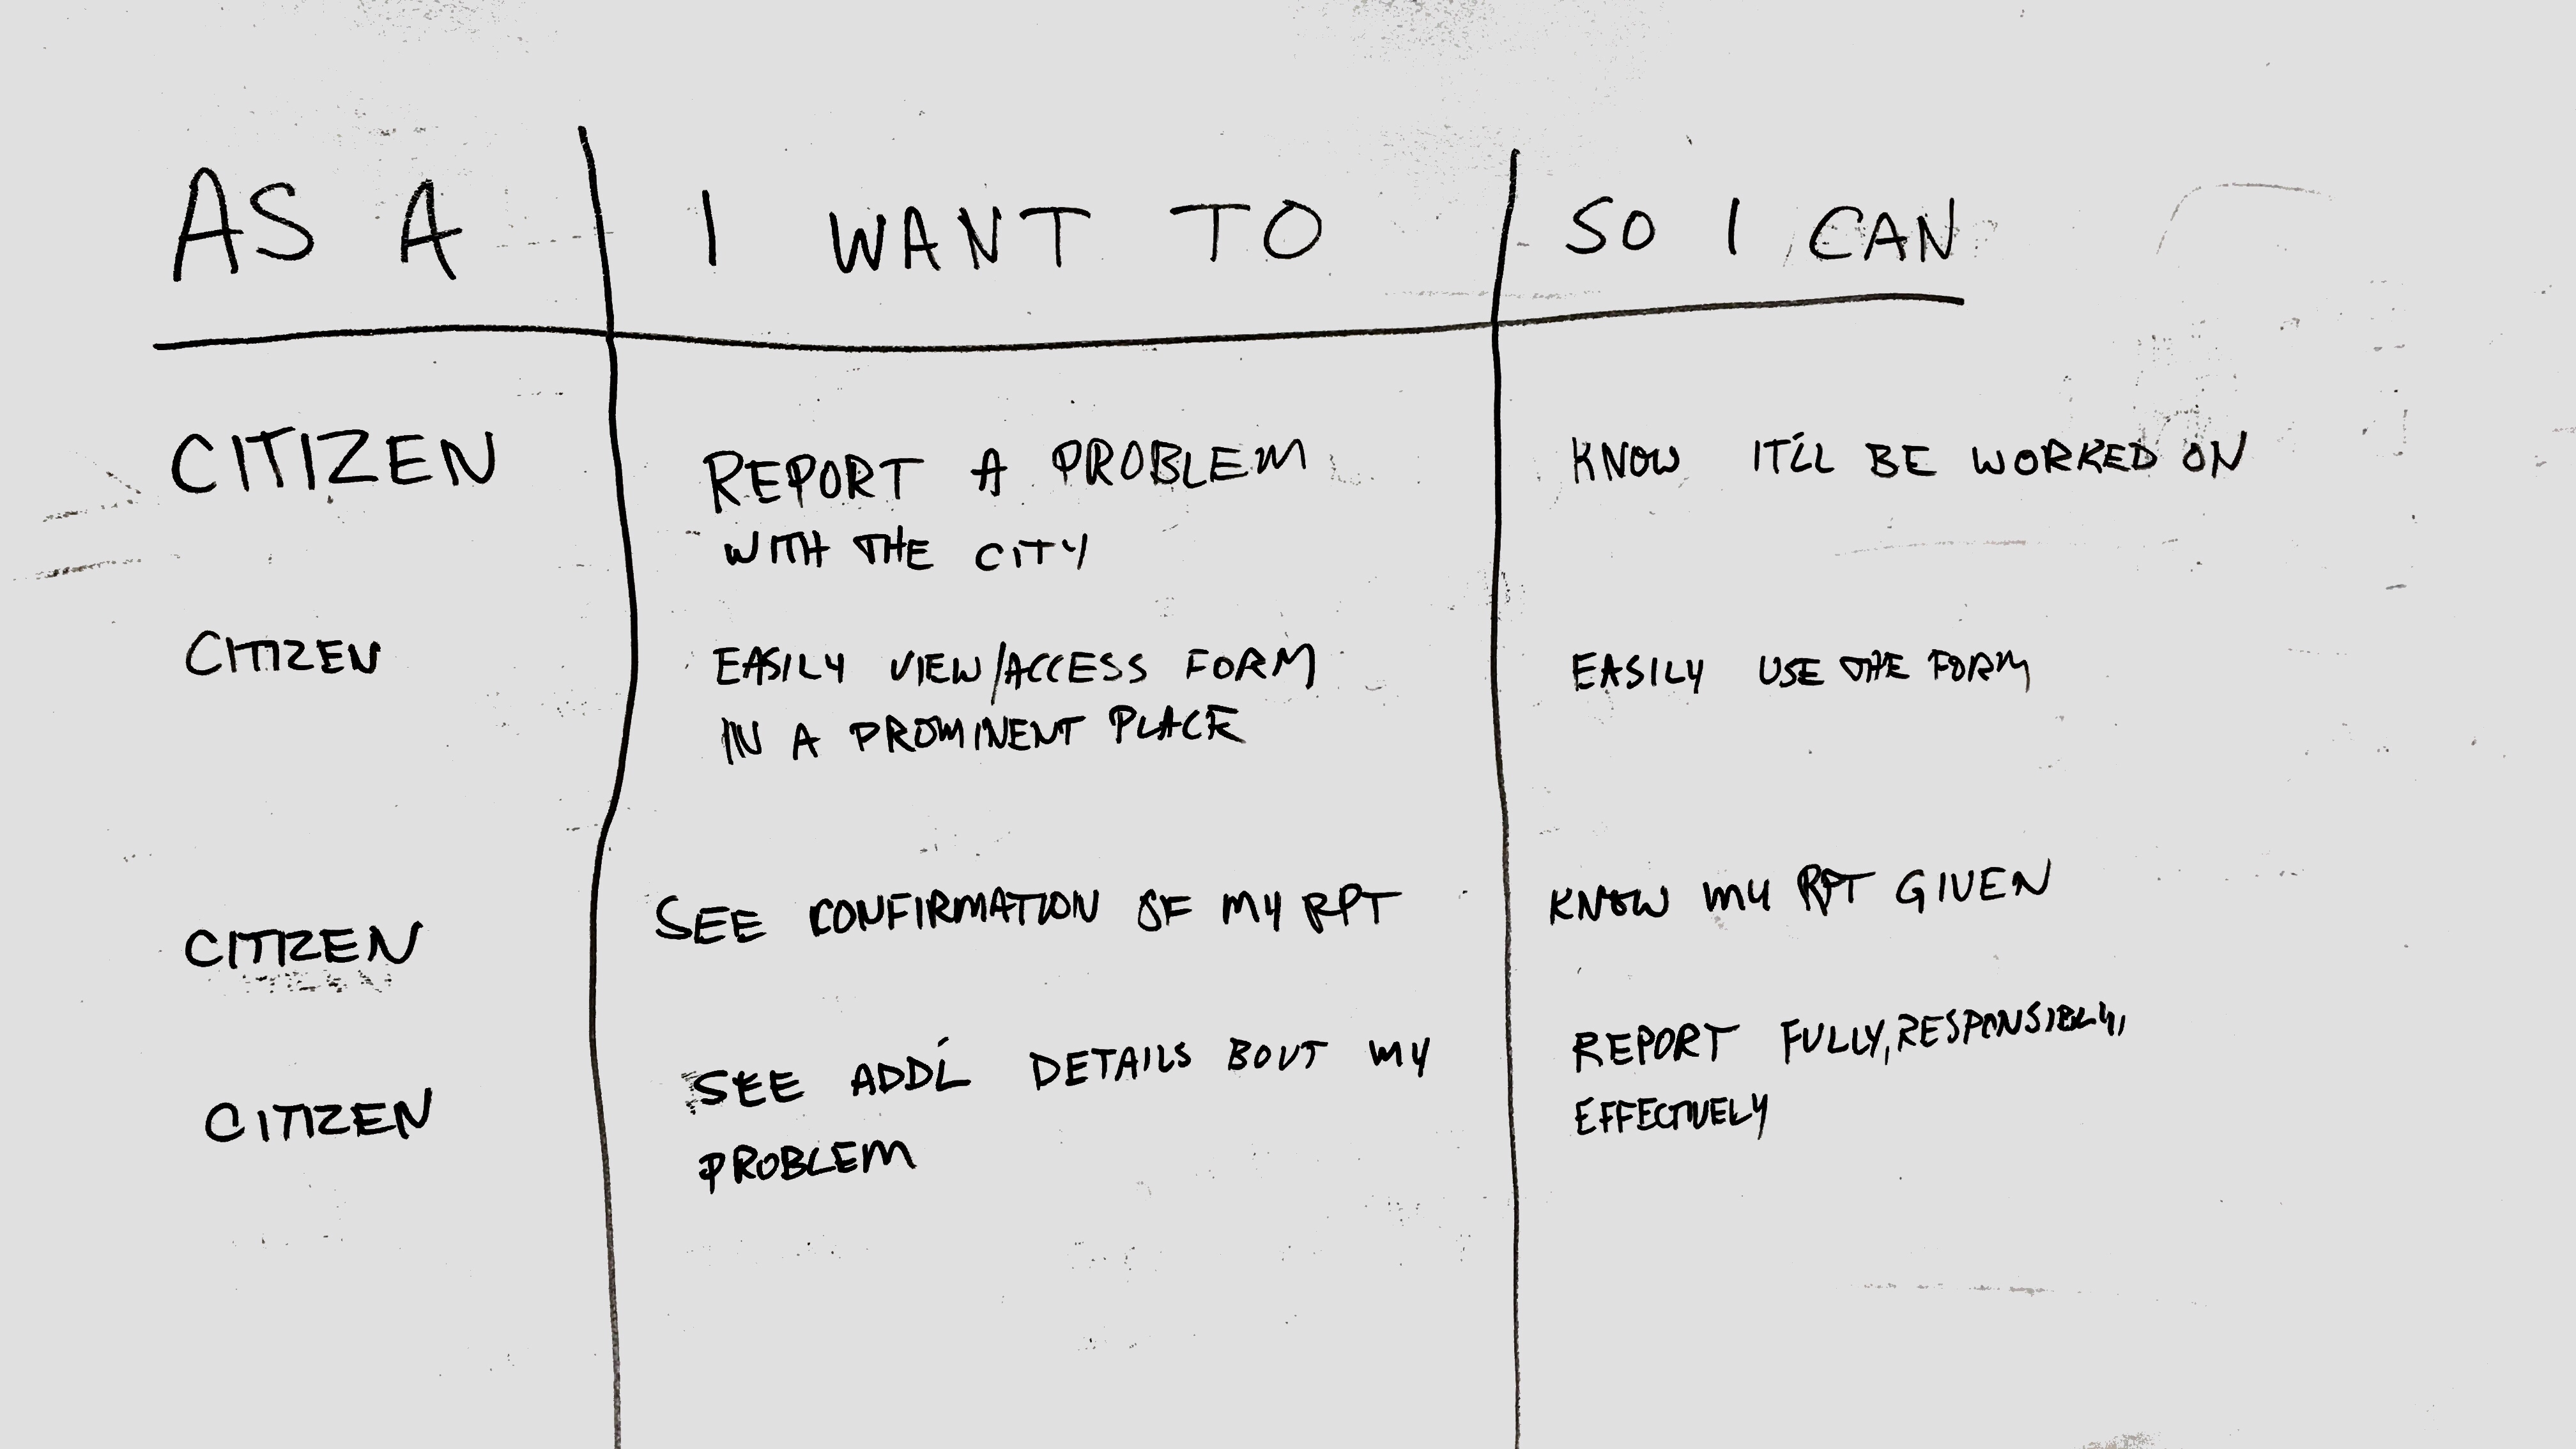 AS A
I WANT TO
SO I CAN
CITIZEN
REPORT A PROBLEM
WITH THE CITY
KNOW IT'LL BE WORKED ON
CITIZEN
EASILY VIEW/ACCESS FORM
IN A PROMINENT PLACE
EASILY USE THE FORM
CITIZEN
SEE CONFIRMATION OF MY RPT
KNOW MY RPT GIVEN
CITIZEN
SEE ADD'L DETAILS BOUT MY
PROBLEM
REPORT FULLY, RESPONSIBLY,
EFFECTIVELY